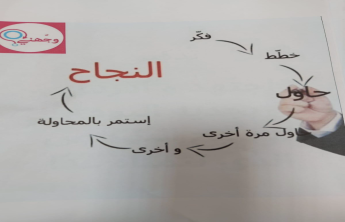 وجهني
فكّر
خطّط
حاول
حاول مرة أخرى
و أخرى
إستمر بالمحاولة
النجاح